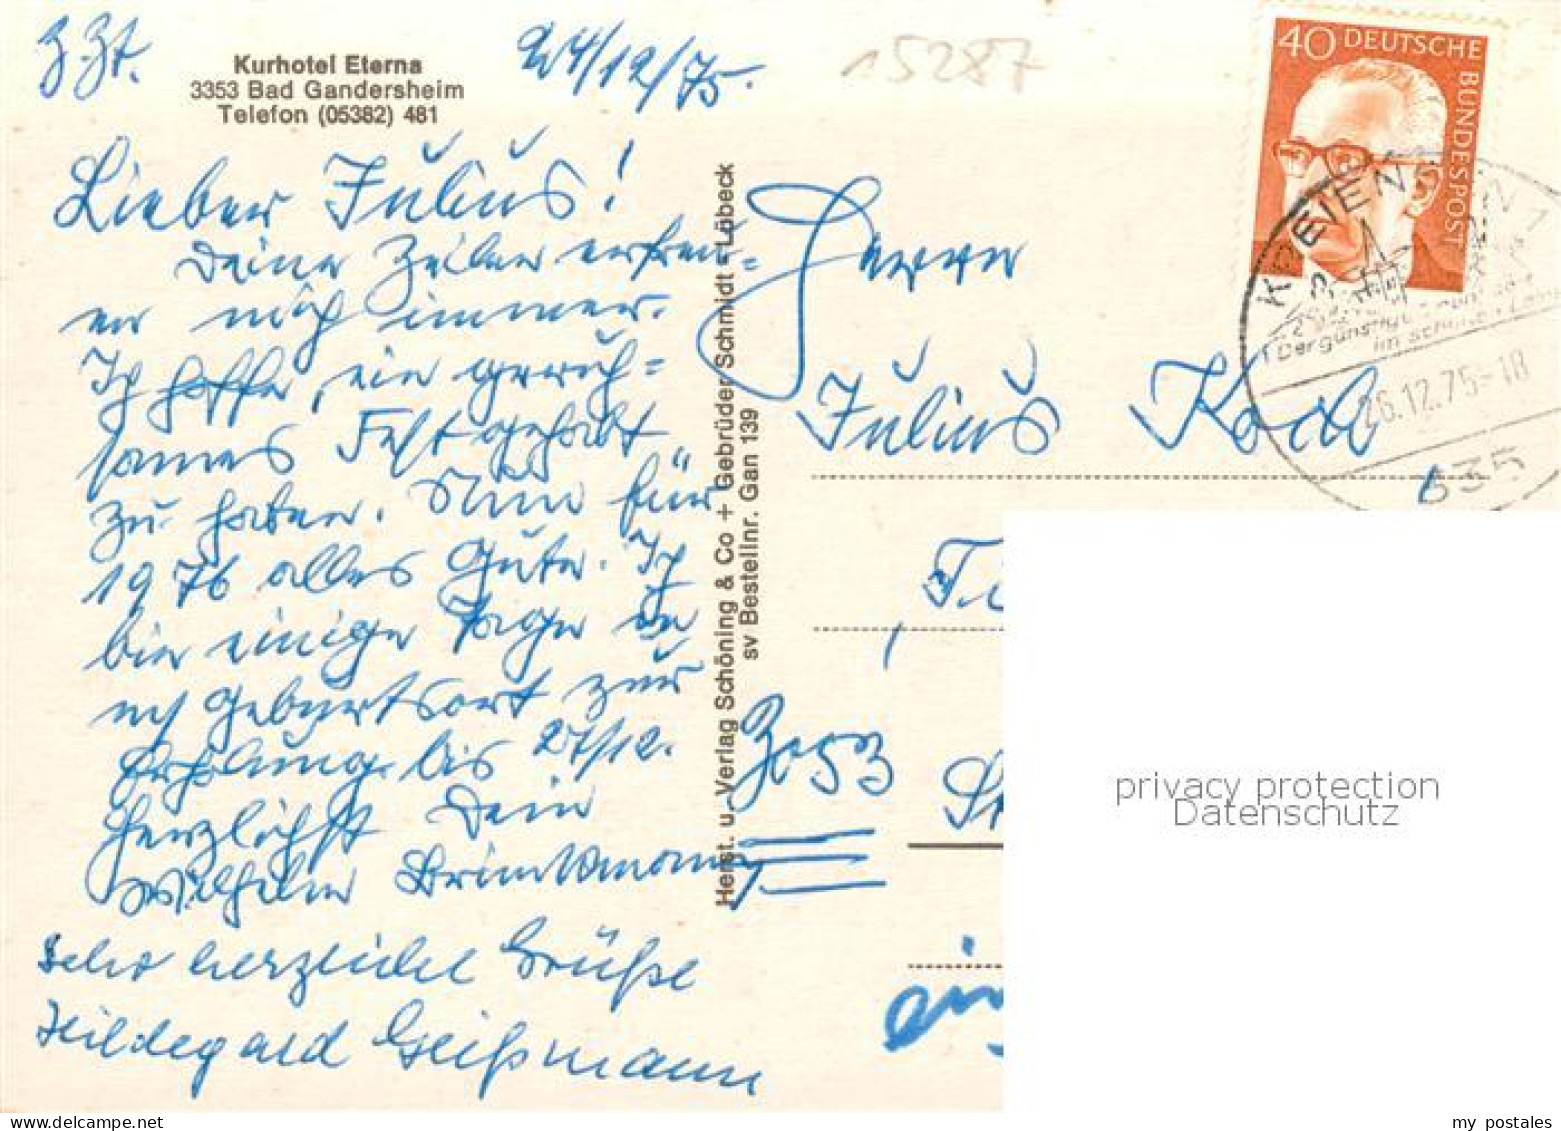 z.Zt.
Kurhotel Eterna
3353 Bad Gandersheim
Telefon (05382) 481
24/12/75.
15287
Lieber Julius!
Deine Zeilen erfreu=
en mich immer.
Ich hoffe, ein geruh=
sames Fest gehabt
zu haben. Nun für
1976 alles Gute. Ich
bin einige Tage in
Geburtsort zur
Erholung bis 27/12.
Herzlichst Dein
Wilhelm Brinkmann
Sehr herzliche Grüße
Hildegard Geißmann
Herst. u. Verlag Schöning & Co + Gebrüder Schmidt - Lübeck
sv Bestellnr. Gan 139
40 DEUTSCHE
BUNDESPOST
KREIENSEN 1
Der günstige
im schönen
26.12.75-18
Herrn
Julius
3053
privacy protection
Datenschutz
my postales